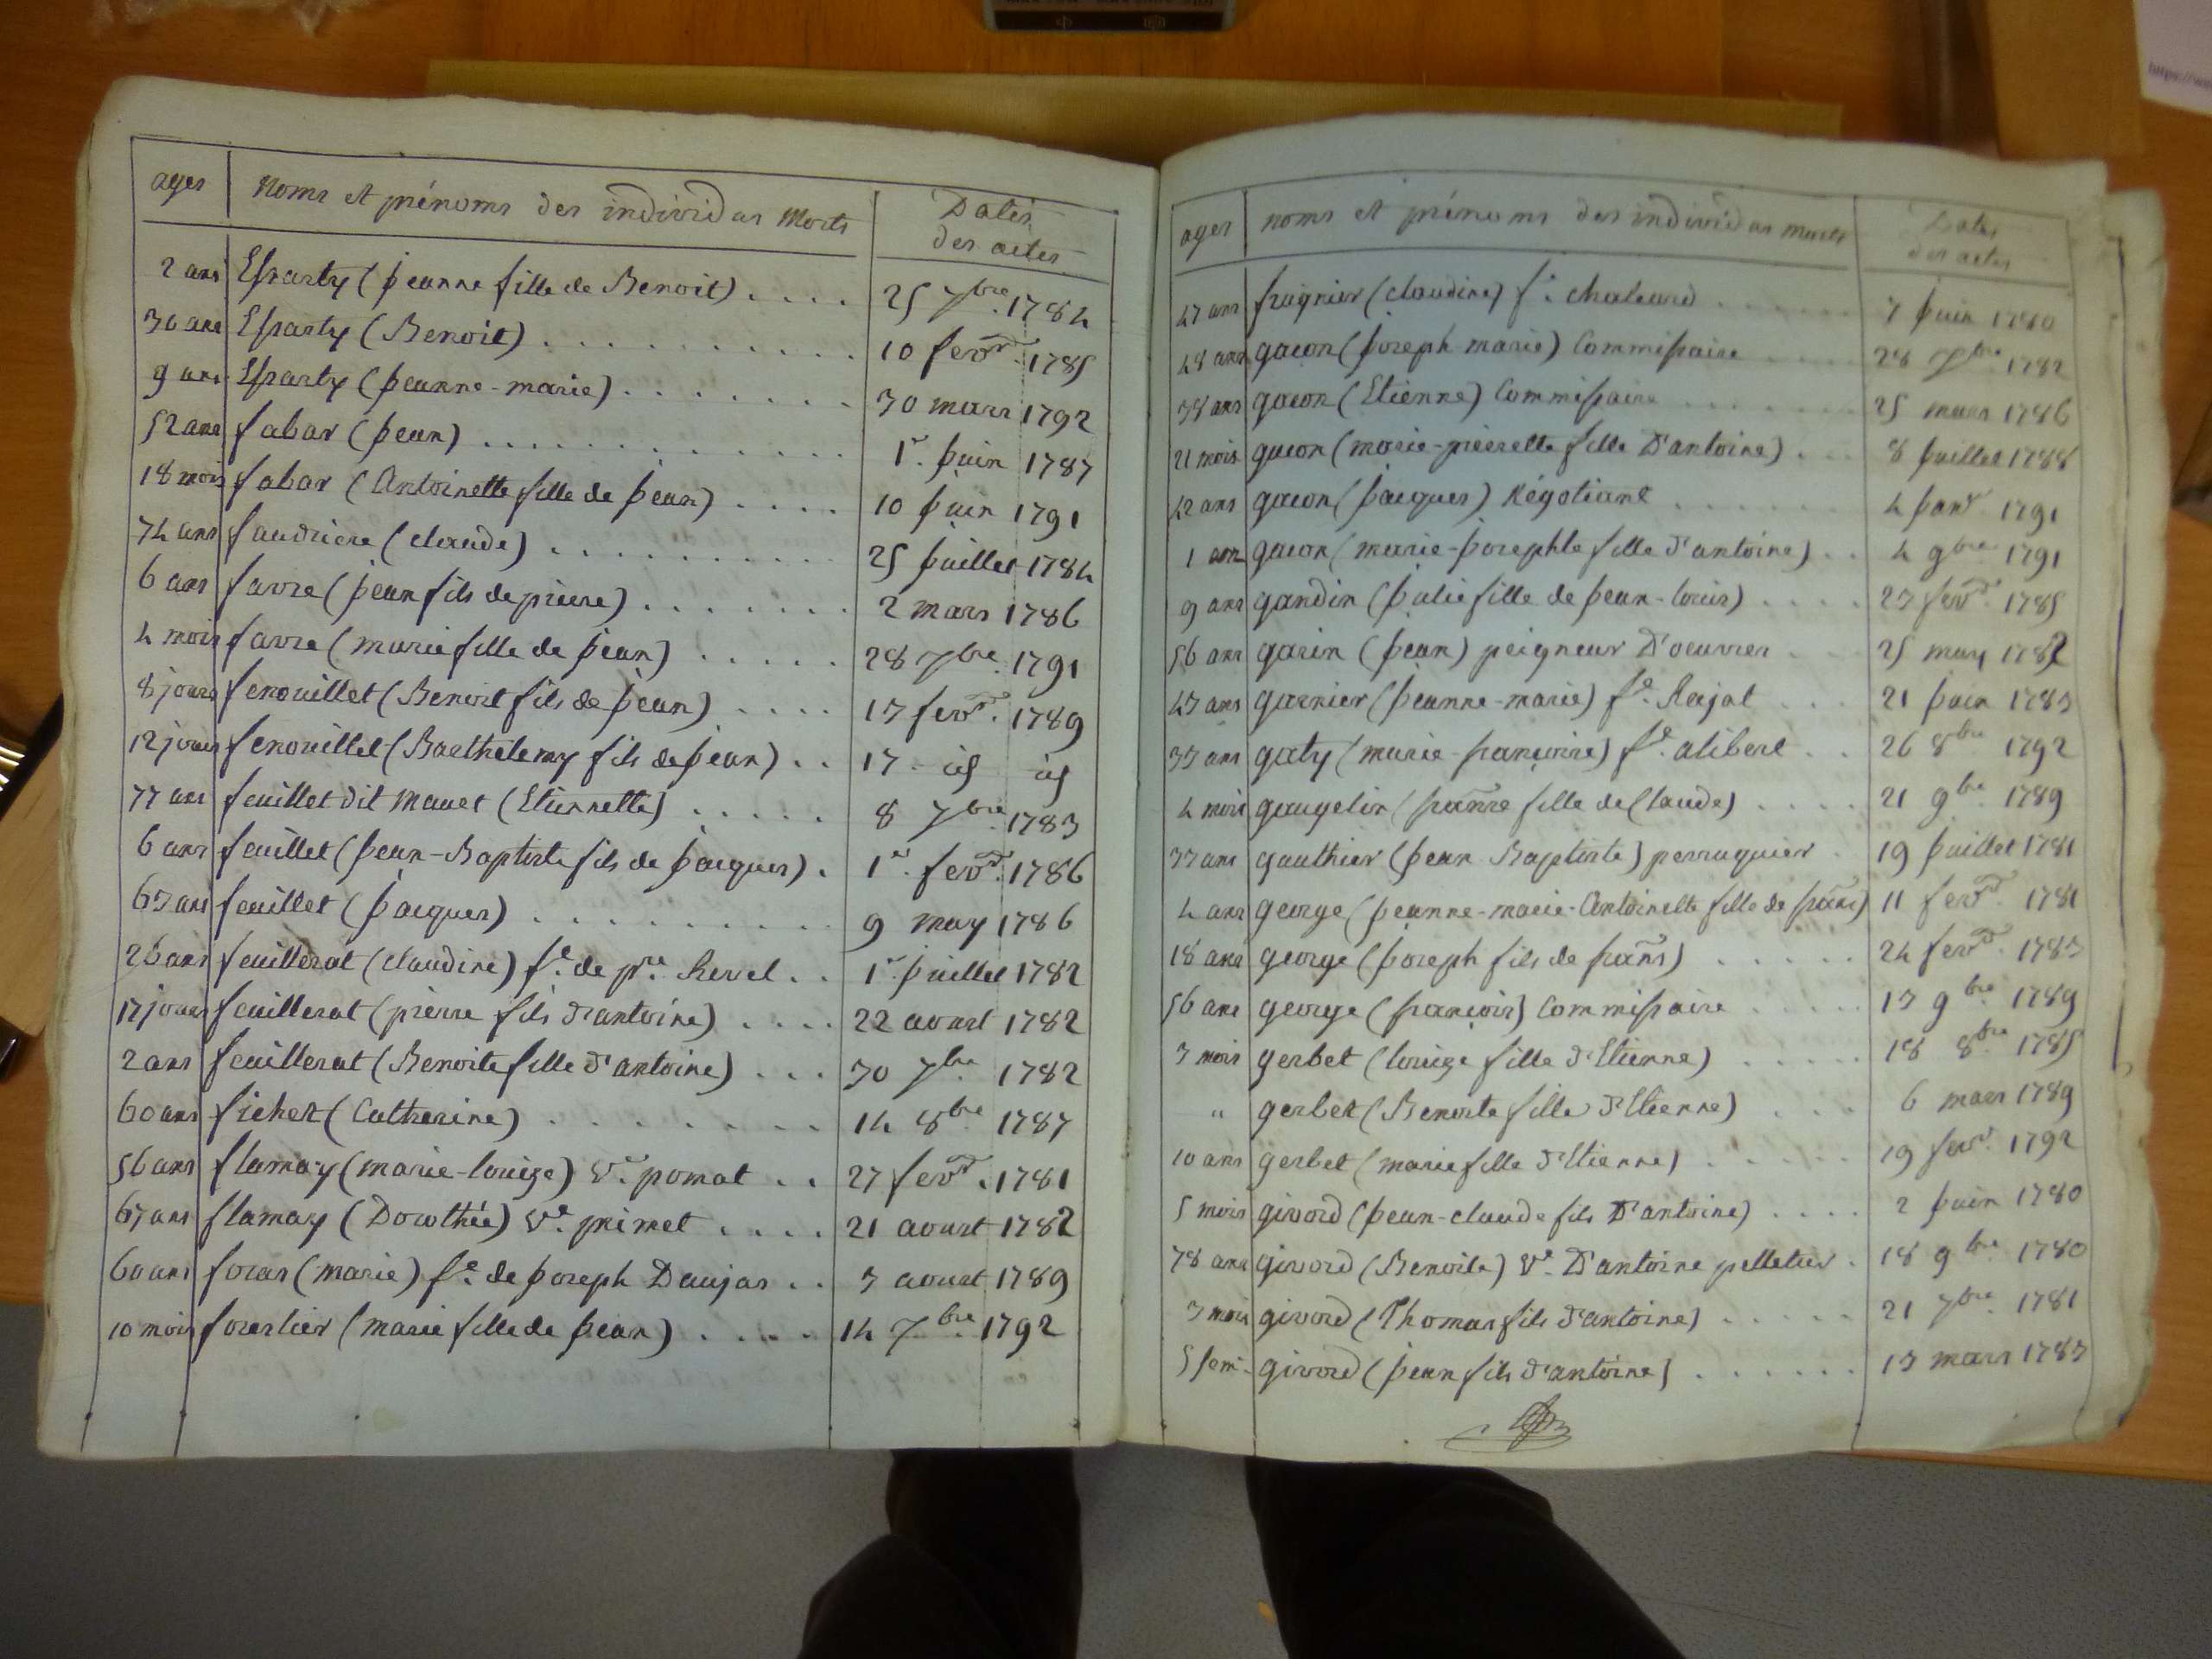 ages noms et prénoms des individus morts Dates
des actes
2 ans Esparty (jeanne fille de Benoit) .... 25 7bre. 1784
30 ans Esparty (Benoit) .......... 10 fevr. 1785
9 ans Esparty (jeanne-marie) ....... 30 mars 1792
52 ans fabar (jean) ............ 1r. juin 1787
18 mois fabar (Antoinette fille de jean) .... 10 juin 1791
74 ans faudriere (claude) ......... 25 juillet 1784
6 ans favre (jean fils de pierre) ....... 2 mars 1786
4 mois favre (marie fille de jean) ..... 28 7bre. 1791
8 jours fenouillet (Benoit fils de jean) .... 13 fevr. 1789
12 jours fenouillet (Barthelemy fils de jean) .. 17 id id
77 ans feuillet dit manet (Etiennette) ..... 8 7bre. 1783
6 ans feuillet (jean-Baptiste fils de jacques) . 1er. fevr. 1786
63 ans feuillet (jacques) .......... 9 may 1786
26 ans feuillerat (claudine) fe. de pre. Revel .. 1r. juillet 1782
17 jours feuillerat (pierre fils d'antoine) .... 22 aoust 1782
2 ans feuillerat (Benoite fille d'antoine) ... 30 7bre. 1782
60 ans fichet (Catherine) ........ 14 8bre 1787
56 ans flamay (marie-louize) ve. pomat .. 27 fevr. 1781
67 ans flamay (Dorothée) ve. primet .... 21 aoust 1782
60 ans foras (marie) fe. de joseph Daujas .. 3 aoust 1789
10 mois forestier (marie fille de jean) .... 14 7bre. 1792
ages noms et prénoms des individus morts Dates
des actes
47 ans fragnier (claudine) fe. chaland ...... 7 juin 1780
48 ans gacon (joseph marie) Commissaire .... 28 7bre. 1782
38 ans gacon (Etienne) Commissaire ....... 25 mars 1786
21 mois gacon (marie-pierrette fille d'antoine) ... 8 juillet 1788
42 ans gacon (jacques) Négotiant ....... 4 janr. 1791
1 an gacon (marie-josephte fille d'antoine) .. 4 9bre. 1791
9 ans gandin (julie fille de jean-louis) .... 23 fevr. 1785
56 ans garin (jean) peigneur d'oeuvres .. 25 may 1782
43 ans garnier (jeanne-marie) fe. Rajat ... 21 juin 1783
33 ans gaty (marie-françoise) fe. alibert .. 26 8bre 1792
4 mois gaugelin (franse fille de Claude) .... 21 9bre. 1789
33 ans gauthier (jean Baptiste) perruquier . 19 juillet 1781
4 ans george (jeanne-marie-Antoinette fille de frans) 11 fevr. 1781
18 ans george (joseph fils de frans) ..... 24 fevr. 1783
56 ans george (françois) Commissaire ..... 13 9bre. 1789
3 mois gerbet (louize fille d'Etienne) ..... 18 8bre. 1785
" gerbet (Benoite fille d'Etienne) ... 6 mars 1789
10 ans gerbet (marie fille d'Etienne) ..... 19 fevr. 1792
5 mois givord (jean-claude fils d'antoine) .... 2 juin 1780
78 ans givord (Benoite) ve. D'antoine pelletier . 18 9bre. 1780
3 mois givord (Thomas fils d'antoine) ..... 21 7bre. 1781
5 sem. givord (jean fils d'antoine) ...... 13 mars 1783